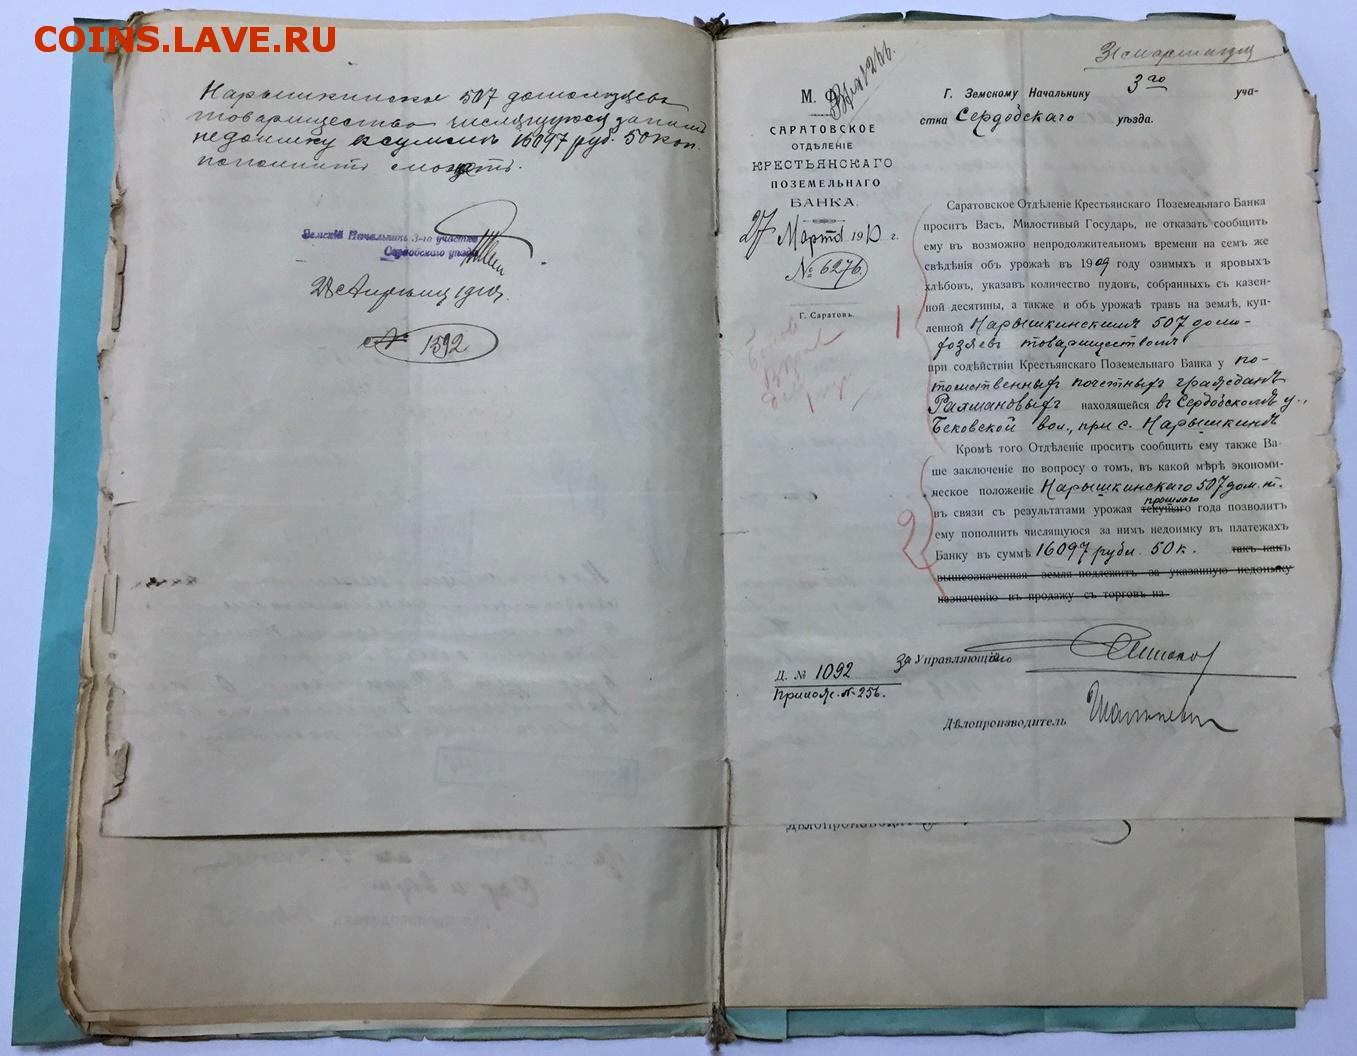 COINS.LAVE.RU
Нарышкинское 507 домохозяевъ
товарищество числящуюся за нимъ
недоимку въ суммѣ 16097 руб. 50 коп.
пополнить сможетъ.
Земскій Начальникъ 3-го участка
Сердобскаго уѣзда
28 Апрѣля 1910 г.
№ 1592
31 марта
М. Ф.
САРАТОВСКОЕ
ОТДѢЛЕНІЕ
КРЕСТЬЯНСКАГО
ПОЗЕМЕЛЬНАГО
БАНКА.
27 Марта 1910 г.
№ 6276.
Г. Саратовъ.
Г. Земскому Начальнику 3го уча-
стка Сердобскаго уѣзда.
Саратовское Отдѣленіе Крестьянскаго Поземельнаго Банка
проситъ Васъ, Милостивый Государь, не отказать сообщить
ему въ возможно непродолжительномъ времени на семъ же
свѣдѣнія объ урожаѣ въ 1909 году озимыхъ и яровыхъ
хлѣбовъ, указавъ количество пудовъ, собранныхъ съ казен-
ной десятины, а также и объ урожаѣ травъ на землѣ, куп-
1
ленной Нарышкинскимъ 507 домо-
хозяевъ товариществомъ
при содѣйствіи Крестьянскаго Поземельнаго Банка у по-
томственныхъ почетныхъ гражданъ
Рахмановыхъ находящейся въ Сердобскомъ у.,
Бековской вол., при с. Нарышкинѣ
Кромѣ того Отдѣленіе проситъ сообщить ему также Ва-
ше заключеніе по вопросу о томъ, въ какой мѣрѣ экономи-
ческое положеніе Нарышкинскаго 507 дом. т.
прошлаго
въ связи съ результатами урожая текущаго года позволитъ
2
ему пополнить числящуюся за нимъ недоимку въ платежахъ
Банку въ суммѣ 16097 рубл. 50 к. такъ какъ
вышеозначенная земля подлежитъ за указанную недоимку
назначенію въ продажу съ торговъ на
за Управляющаго
Д. № 1092
Прилож. № 256.
Дѣлопроизводитель